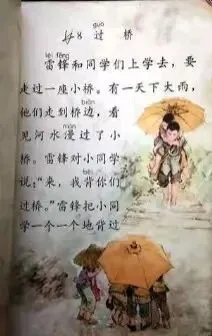 guò
8 过桥
léi fēng
雷锋和同学们上学去，要
走过一座小桥。有一天下大雨，
biān
他们走到桥边，看
màn
见河水漫过了小
桥。雷锋对小同学
shuō bēi
说：“来，我背你们
过桥。”雷锋把小同
学一个一个地背过